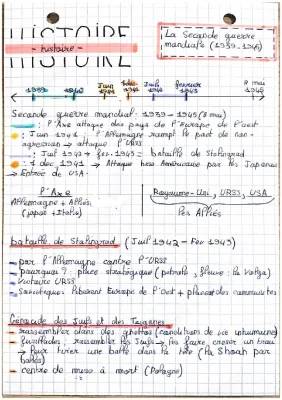 HISTOIRE
- histoire -
La Seconde guerre
mondiale (1939-1945)
1939 1940 Juin 1941 7 déc 1941 Juil 1942 février 1943 8 mai 1945
Seconde guerre mondial : 1939 - 1945 (8 mai)
: l'Axe attaque des pays de l'Europe de l'Ouest
: Juin 1941 : l'Allemagne rompt le pact de non-
agression → attaque l'URSS
: Juil 1942 → fev. 1943 = bataille de Stalingrad
: 7 dec 1941 → Attaque base Américaine par les Japonais
→ Entrée de USA.
l'Axe
Allemagne + Alliés
(Japon + Italie)
Royaume-Uni, URSS, USA
les Alliés
bataille de Stalingrad (Juil 1942 - Fev 1943)
- par l'Allemagne contre l'URSS
- pourquoi ? place stratégique (petrole, fleuve : la Volga)
- victoire URSS
- Soviétiques : liberent Europe de l'Est + place des communistes
Génocide des Juifs et des Tziganes
- rassembler dans des ghettos (conditions de vie inhumaine)
- fusillades : rassembler les Juifs → les faire creuser un trou
→ leur tirer une balle dans la tête (la Shoah par
balles)
- centre de mise à mort (Pologne)